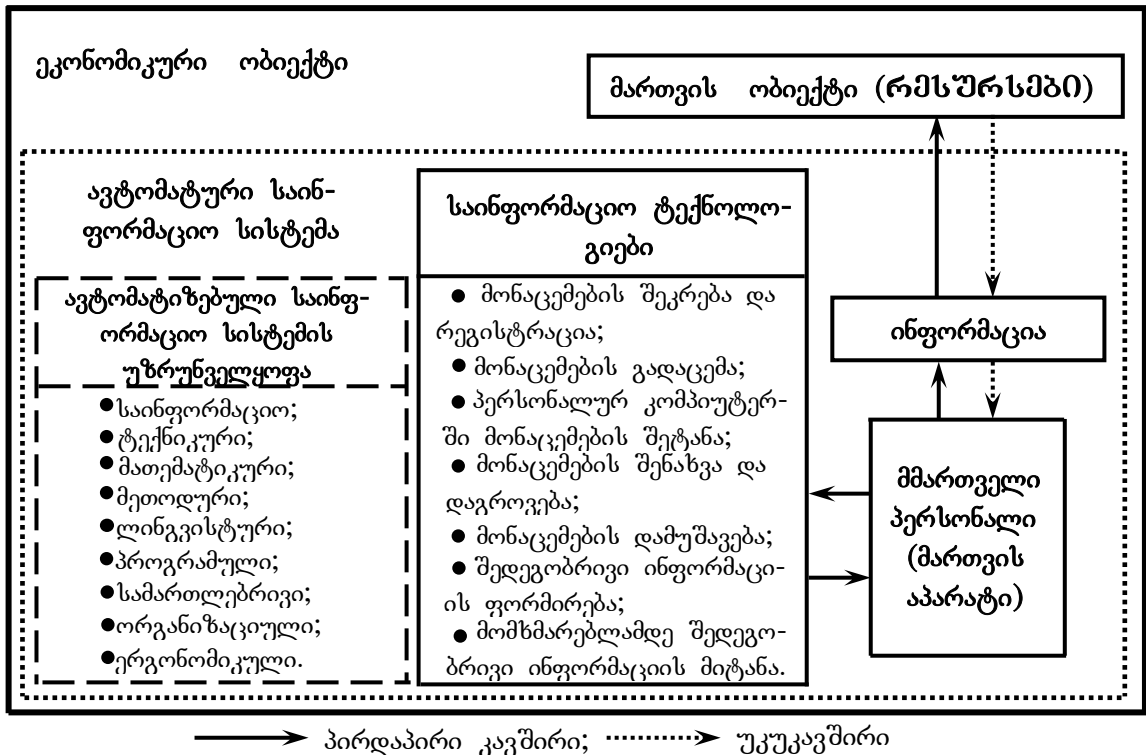 ეკონომიკური ობიექტი
მართვის ობიექტი (ᲠᲔᲡᲣᲠᲡᲔᲑᲘ)
ავტომატური საინ-
ფორმაციო სისტემა
ავტომატიზებული საინფ-
ორმაციო სისტემის
უზრუნველყოფა
●საინფორმაციო;
●ტექნიკური;
●მათემატიკური;
●მეთოდური;
●ლინგვისტური;
●პროგრამული;
●სამართლებრივი;
●ორგანიზაციული;
●ერგონომიკული.
საინფორმაციო ტექნოლო-
გიები
● მონაცემების შეკრება და
რეგისტრაცია;
● მონაცემების გადაცემა;
● პერსონალურ კომპიუტერ-
ში მონაცემების შეტანა;
● მონაცემების შენახვა და
დაგროვება;
● მონაცემების დამუშავება;
● შედეგობრივი ინფორმაცი-
ის ფორმირება;
● მომხმარებლამდე შედეგო-
ბრივი ინფორმაციის მიტანა.
ინფორმაცია
მმართველი
პერსონალი
(მართვის
აპარატი)
პირდაპირი კავშირი; უკუკავშირი